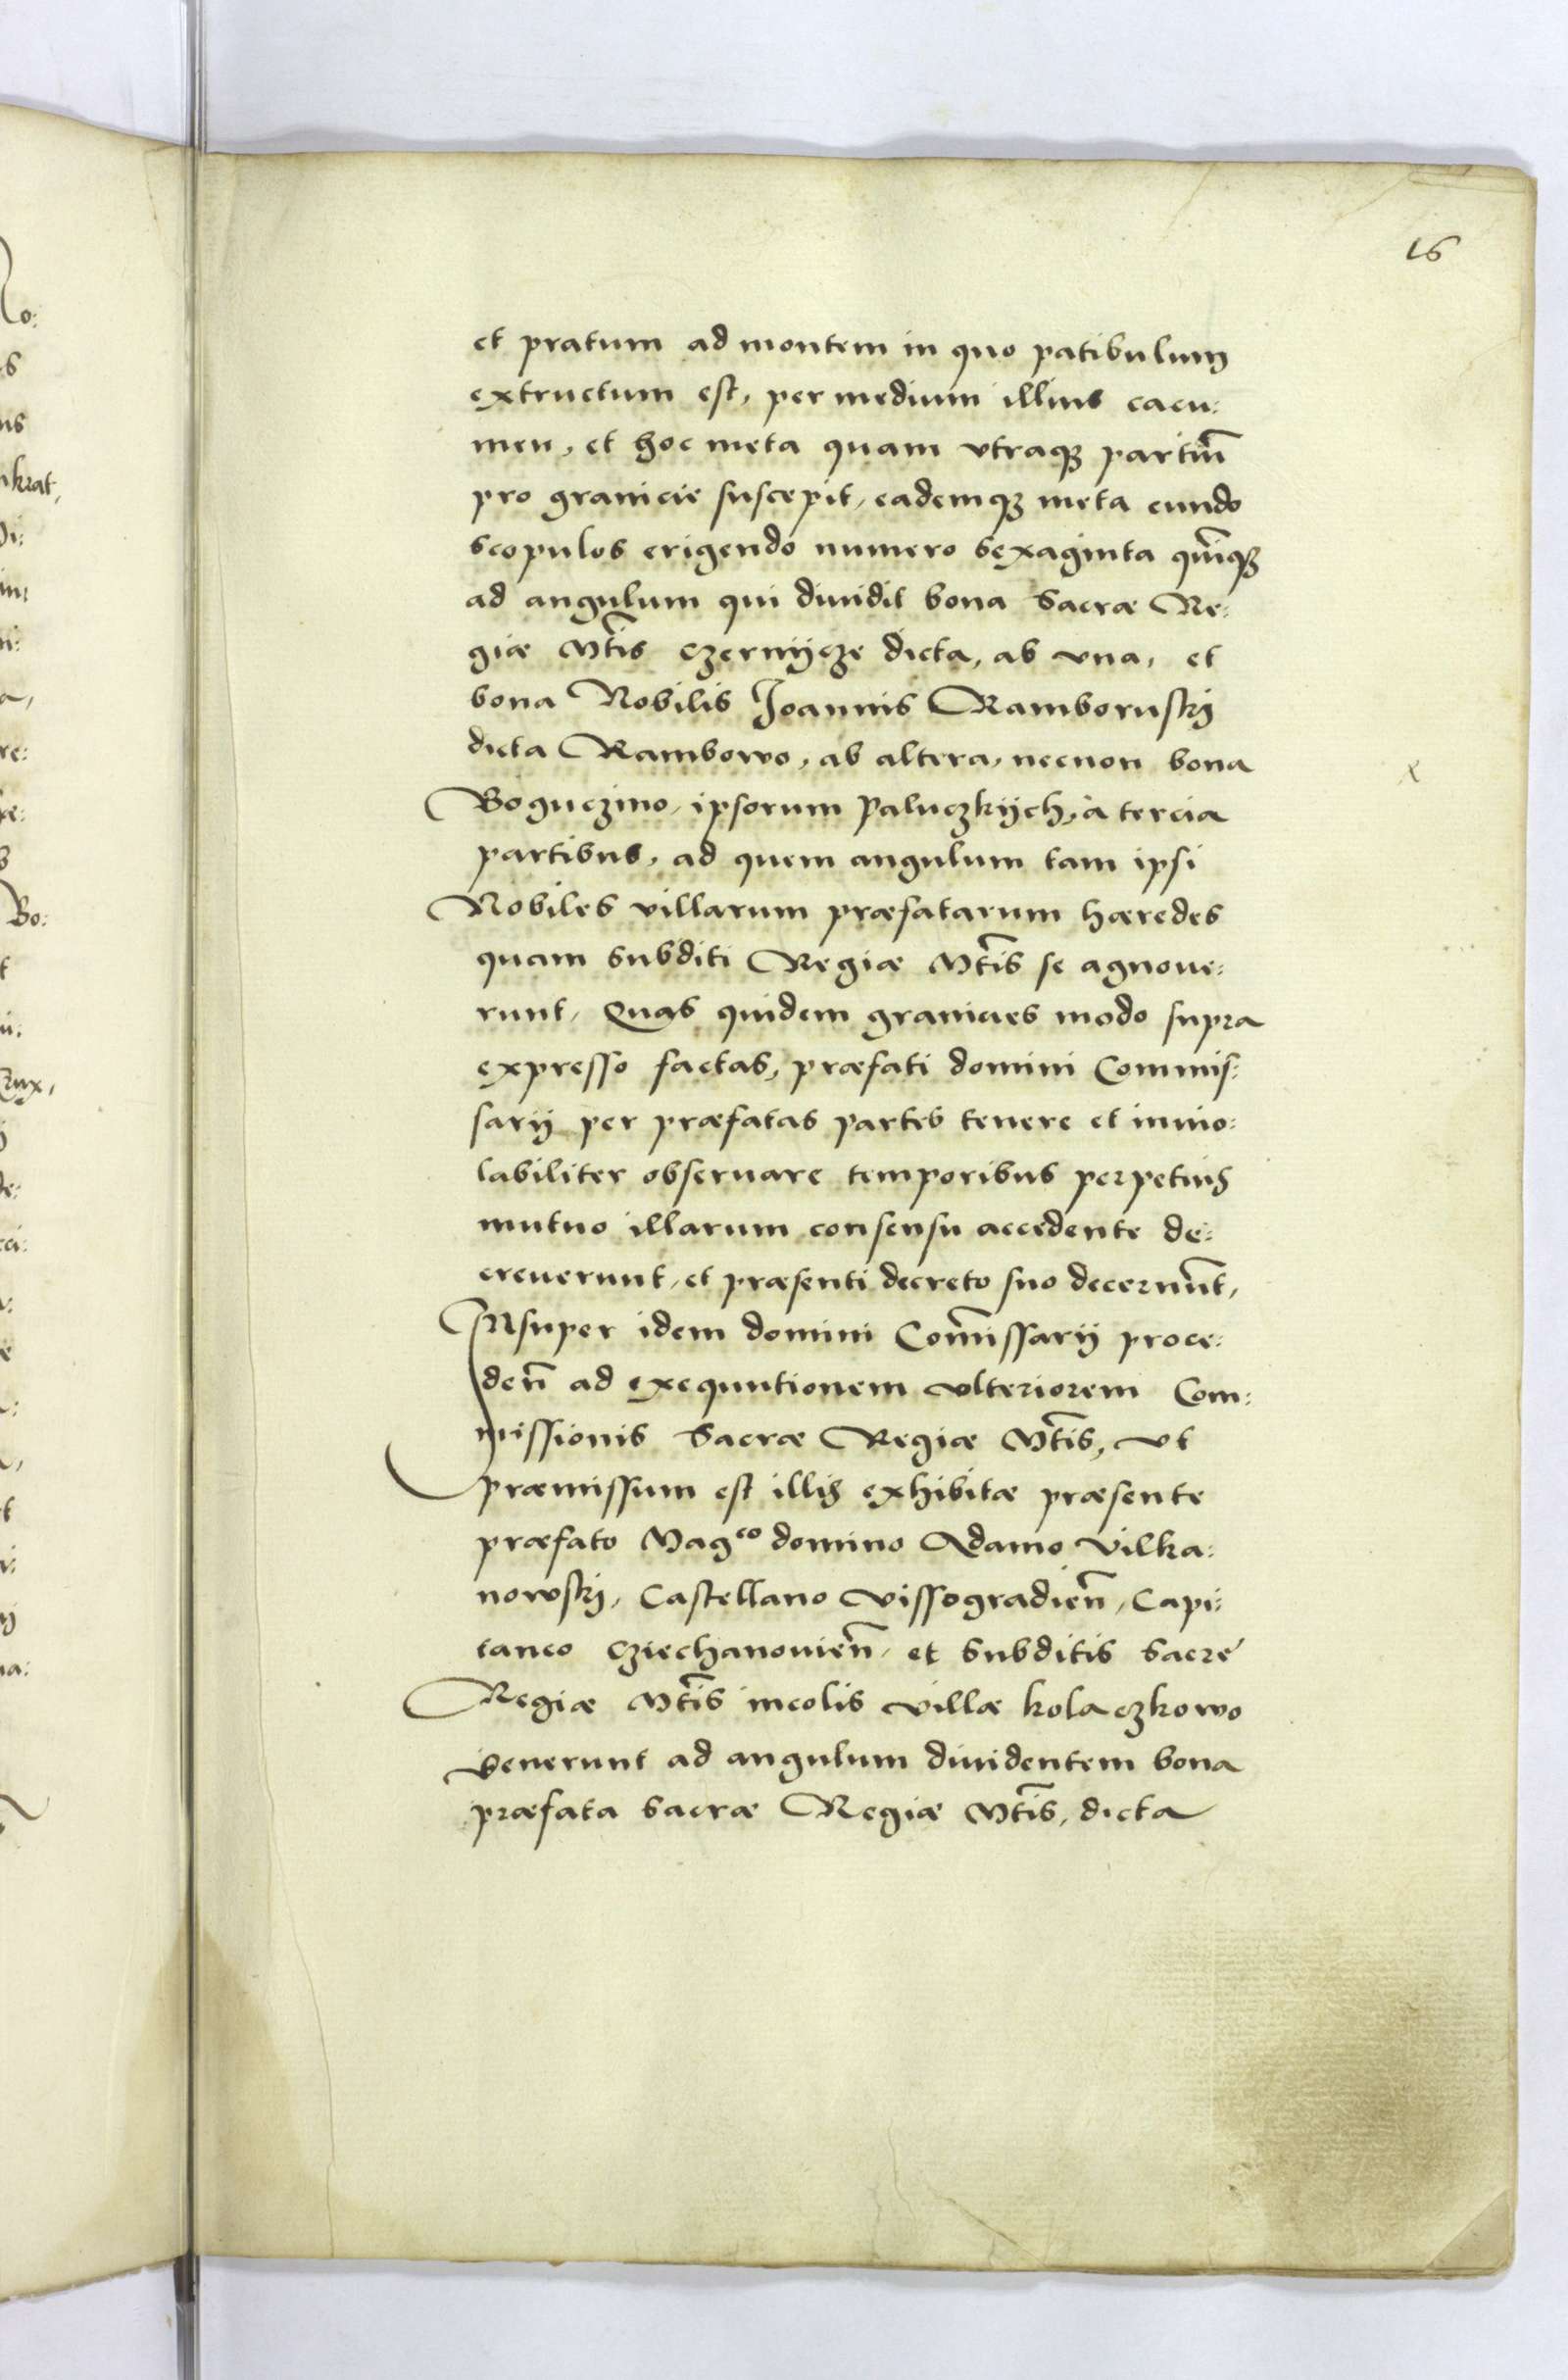 16
et pratum ad montem in quo patibulum
extructum est, per medium illius cacu:
men, et hoc meta quam vtraqꝫ partiũ
pro granicie suscepit, eademqꝫ meta eundo
scopulos erigendo numero sexaginta quĩqꝫ
ad angulum qui diuidit bona Sacræ Re:
giæ Mt̃is Czernÿcze dicta, ab vna, et
bona Nobilis Joannis Ramborusky
dicta Rambowo, ab altera, necnon bona
Boguczino, ipsorum Paluczkÿch, à tercia
partibus, ad quem angulum tam ipsi
Nobiles villarum præfatarum hæredes
quam subditi Regiæ Mt̃is se agnoue:
runt, Quas quidem granicies modo supra
expresso factas, præfati domini Commis:
sarÿ per præfatas partes tenere et inuio:
labiliter obseruare temporibus perpetuis
mutuo illarum consensu accedente de:
creuerunt, et præsenti decreto suo decernũt,
INsuper idem domini Com̃issarÿ proce:
den̄ ad exequutionem vlteriorem Com:
missionis Sacræ Regiæ Mt̃is, vt
præmissum est illis exhibitæ præsente
præfato Mag^co domino Adamo Vilka:
nowsky, Castellano Vissogradien̄, Capi:
taneo Cziechanouien̄, et subditis Sacrę
Regiæ Mt̃is incolis villæ kolaczkowo
venerunt ad angulum diuidentem bona
præfata Sacræ Regiæ Mt̃is, dicta